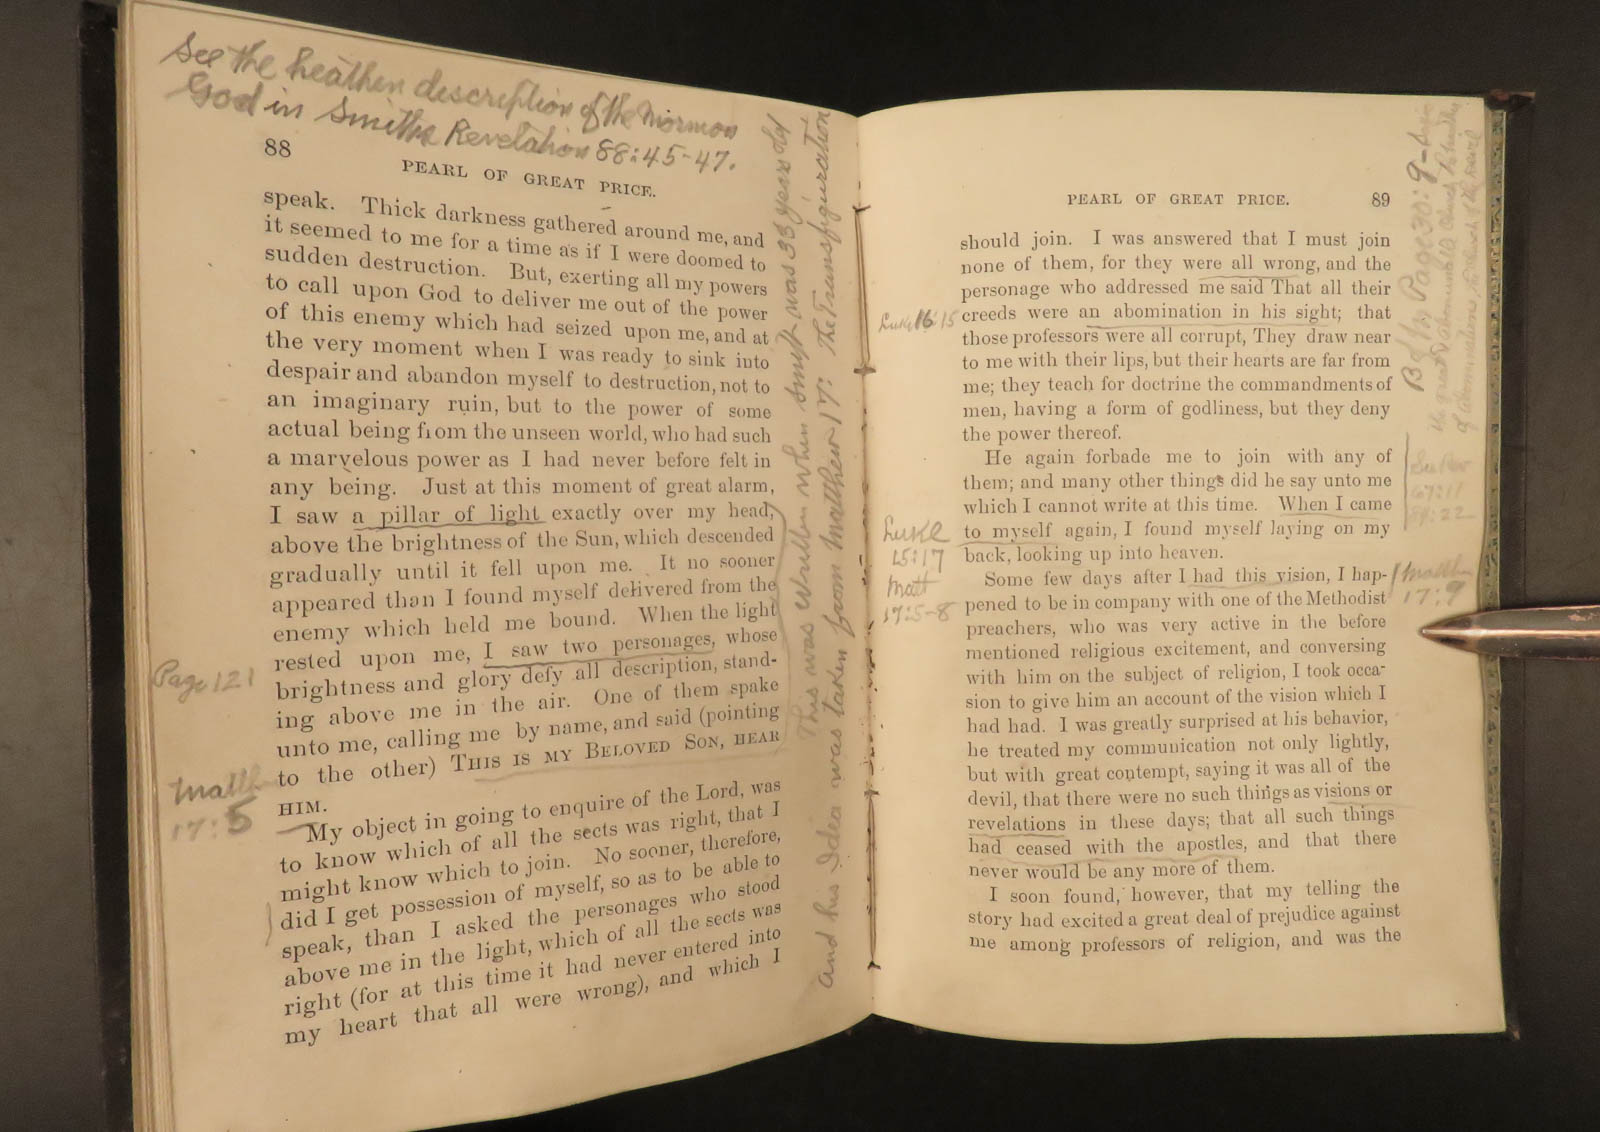 See the heathen description of the Mormon
God in Smiths Revelation 88:45-47.
88
PEARL OF GREAT PRICE.
speak. Thick darkness gathered around me, and
it seemed to me for a time as if I were doomed to
sudden destruction. But, exerting all my powers
to call upon God to deliver me out of the power
of this enemy which had seized upon me, and at
the very moment when I was ready to sink into
despair and abandon myself to destruction, not to
an imaginary ruin, but to the power of some
actual being from the unseen world, who had such
a marvelous power as I had never before felt in
any being. Just at this moment of great alarm,
I saw a pillar of light exactly over my head,
above the brightness of the Sun, which descended
gradually until it fell upon me. It no sooner
appeared than I found myself delivered from the
enemy which held me bound. When the light
rested upon me, I saw two personages, whose
brightness and glory defy all description, stand-
ing above me in the air. One of them spake
unto me, calling me by name, and said (pointing
to the other) THIS IS MY BELOVED SON, HEAR
HIM.
My object in going to enquire of the Lord, was
to know which of all the sects was right, that I
might know which to join. No sooner, therefore,
did I get possession of myself, so as to be able to
speak, than I asked the personages who stood
above me in the light, which of all the sects was
right (for at this time it had never entered into
my heart that all were wrong), and which I
Page 121
Matth
17:5
This was written when Smith was 33 years old
and his Idea was taken from Matthew 17: The Transfiguration
PEARL OF GREAT PRICE.
89
should join. I was answered that I must join
none of them, for they were all wrong, and the
personage who addressed me said That all their
creeds were an abomination in his sight; that
those professors were all corrupt, They draw near
to me with their lips, but their hearts are far from
me; they teach for doctrine the commandments of
men, having a form of godliness, but they deny
the power thereof.
He again forbade me to join with any of
them; and many other things did he say unto me
which I cannot write at this time. When I came
to myself again, I found myself laying on my
back, looking up into heaven.
Some few days after I had this vision, I hap-
pened to be in company with one of the Methodist
preachers, who was very active in the before
mentioned religious excitement, and conversing
with him on the subject of religion, I took occa-
sion to give him an account of the vision which I
had had. I was greatly surprised at his behavior,
he treated my communication not only lightly,
but with great contempt, saying it was all of the
devil, that there were no such things as visions or
revelations in these days; that all such things
had ceased with the apostles, and that there
never would be any more of them.
I soon found, however, that my telling the
story had excited a great deal of prejudice against
me among professors of religion, and was the
Luke 16:15
Luke
15:17
Matt
17:5-8
Page 30:9
See Rev
67:11
84:22
Matth
17:9